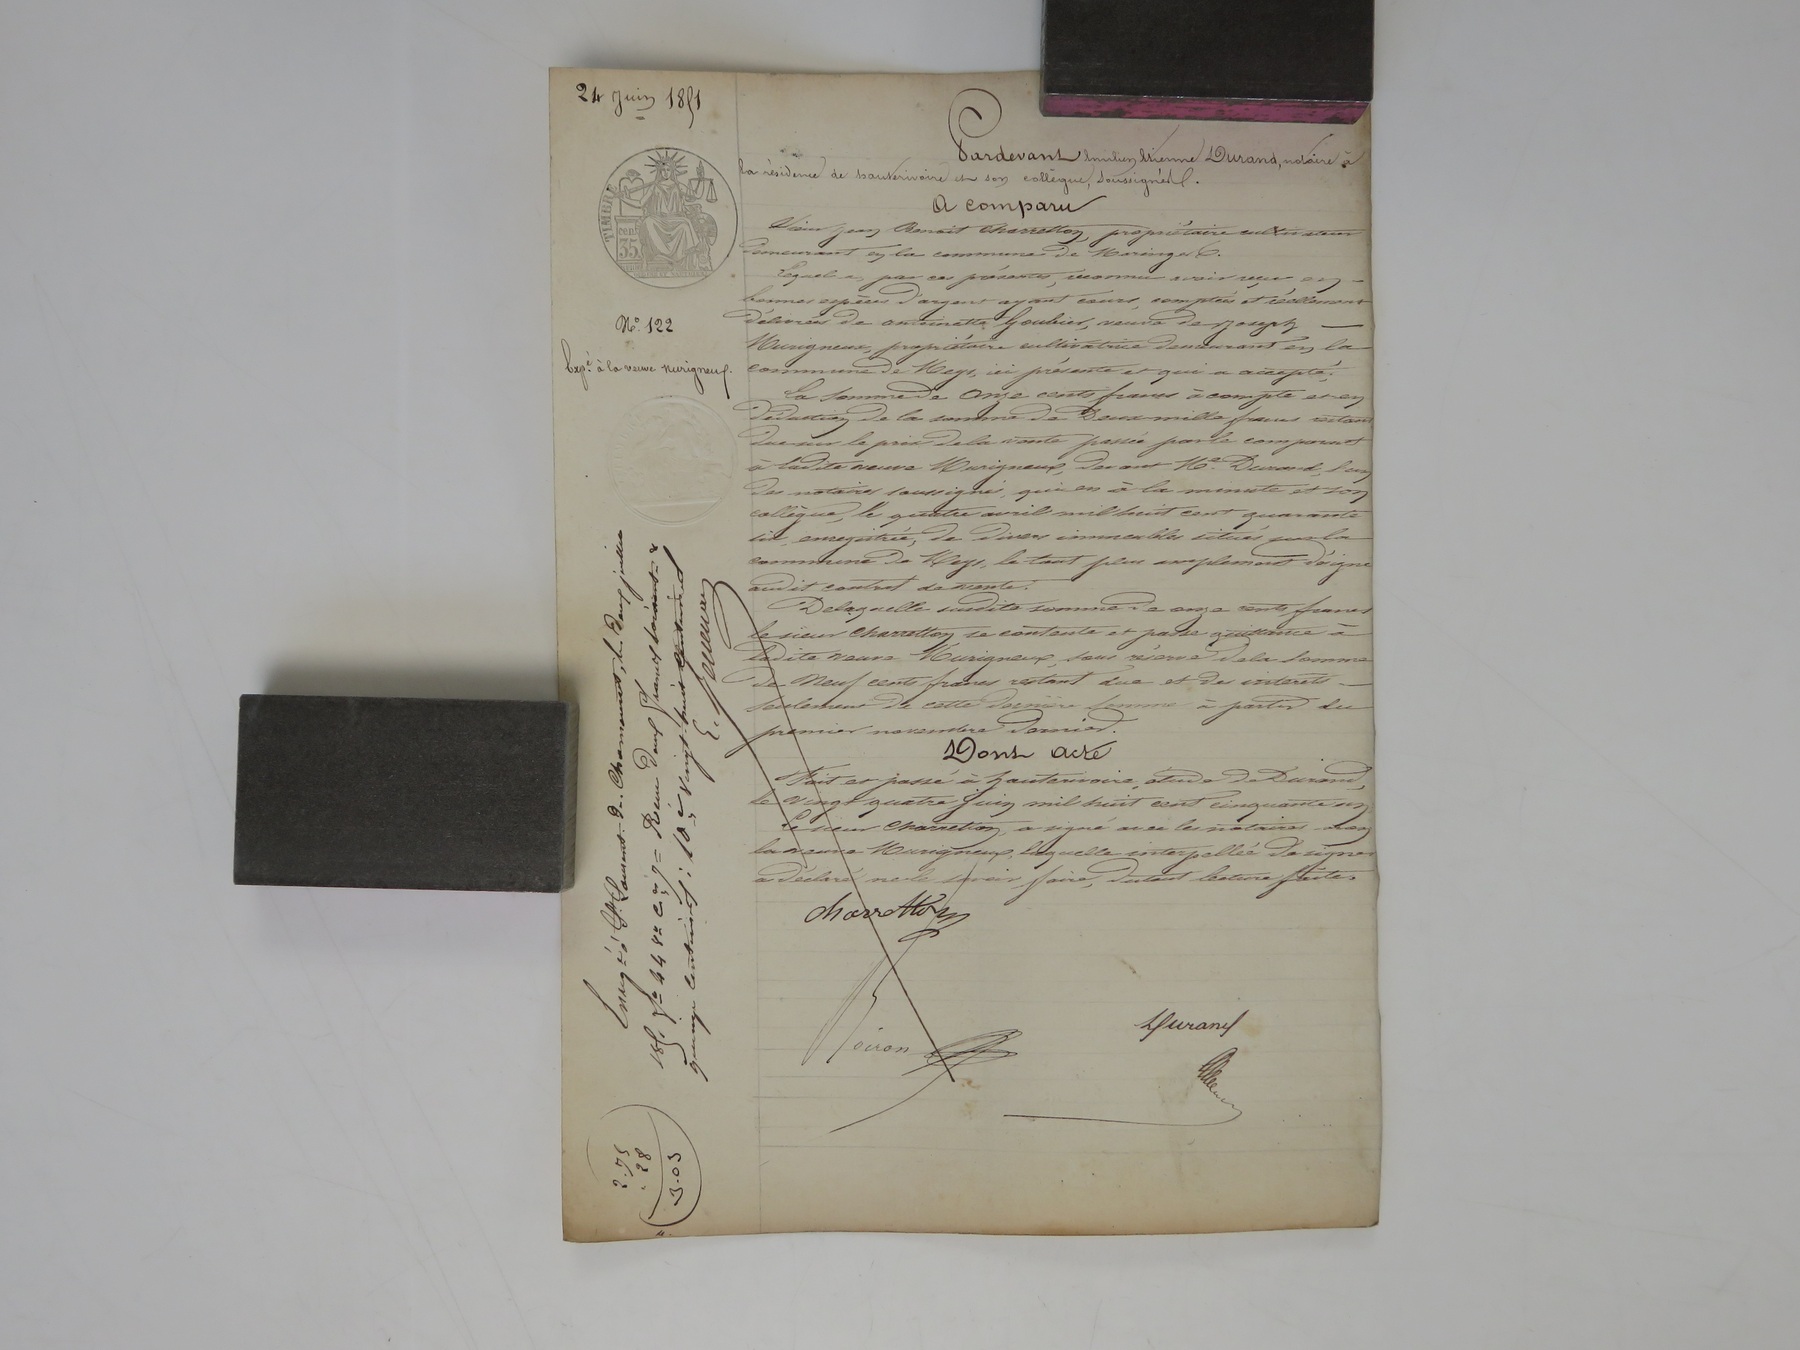 24 Juin 1851
TIMBRE
35
cen
N.° 122
Exp.é à la veuve Murigneux.
Pardevant Emilien Etienne Durand, notaire à
la résidence de hauterivoire et son collègue, soussignés.
A comparu
Sieur Jean Benoit Charretton, propriétaire cultivateur
demeurant en la commune de Maringes.
Lequel a, par ces présentes, reconnu avoir reçu en
bonnes espèces d'argent ayant cours, comptées et réellement
délivrées de antoinette Goubier, veuve de Joseph
Murigneux, propriétaire cultivatrice demeurant en la
commune de Meys, ici présente et qui a accepté,
La somme de Onze cents francs à compte et en
déduction de la somme de Deux mille francs restant
due sur le prix de la vente passée par le comparant
à ladite veuve Murigneux, devant Me. Durand, l'un
des notaires soussignés, qui en a la minute et son
collègue, le quatre avril mil huit cent quarante
six, enregistrée, de divers immeubles situés sur la
commune de Meys, le tout plus amplement désigné
audit contrat de vente.
Delaquelle susdite somme de onze cents francs
le sieur Charretton se contente et passe quittance à
ladite veuve Murigneux, sous réserve de la somme
de Neuf cents francs restant due et des intérêts
seulement de cette dernière somme à partir du
premier novembre dernier.
Dont acte
Fait et passé à hauterivoire, étude de Durand,
le vingt quatre juin mil huit cent cinquante un
Le sieur Charretton a signé avec les notaires non
la veuve Murigneux, laquelle interpellée de signer
a déclaré ne le savoir faire, dutout lecture faite.
Charretton
Durand
Enreg.é à St. Laurent-de-Chamousset, le deux juillet
1851 f° 44 r° c. 7 = Reçu deux francs soixante &
quinze centimes; 10e vingt huit centimes
2.75
. 28
3.03